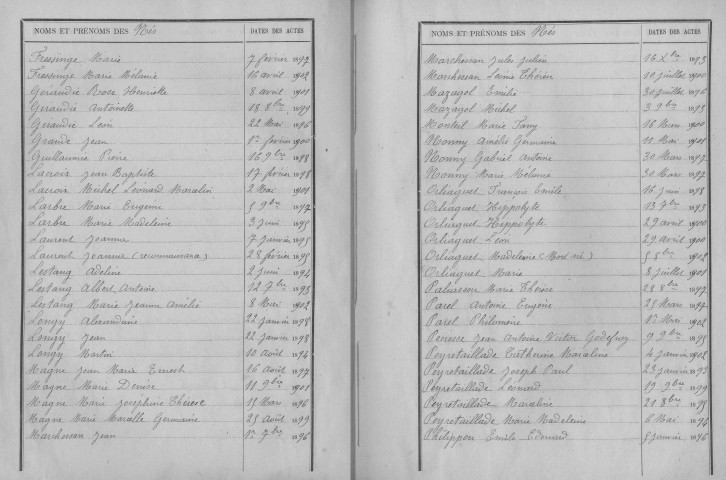 NOMS ET PRÉNOMS DES Nés DATES DES ACTES
Fressinge Marie 7 février 1897
Fressinge Marie Mélanie 16 avril 1902
Geraudie Rose Henriette 8 avril 1901
Geraudie Antoinette 18 8bre 1899
Geraudie Léon 22 Mai 1896
Grande Jean 1er février 1900
Guillaumie Pierre 16 9bre 1898
Lacroix Jean Baptiste 17 février 1898
Lacroix Michel Léonard Marcelin 2 Mai 1901
Larbre Marie Eugénie 5 9bre 1897
Larbre Marie Madeleine 3 Juin 1895
Laurent Jeanne 7 janvier 1895
Laurent Jeanne 28 février 1895
Lestang Adeline 2 juin 1894
Lestang Albert Antoine 12 7bre 1893
Lestang Marie Jeanne Amélie 8 Mai 1902
Longy Alexandrine 22 janvier 1898
Longy Jean 22 janvier 1898
Longy Martin 10 août 1894
Magne Jean Marie Ernest 16 Août 1897
Magne Marie Denise 11 9bre 1901
Magne Marie Joséphine Thérèse 15 Mars 1896
Magne Marie Marcelle Germaine 25 Août 1899
Marchessan Jean 1er 7bre 1896
NOMS ET PRÉNOMS DES Nés DATES DES ACTES
Marchessan Jules Julien 16 Xbre 1893
Marchessan Léonie Thérèse 10 juillet 1900
Mazagol Emilie 30 juillet 1896
Mazagol Michel 3 9bre 1893
Monteil Marie Fany 16 Mars 1900
Monny Amélie Germaine 11 Mai 1901
Monny Gabriel Antoine 30 Mars 1897
Monny Marie Mélanie 30 Mars 1897
Orliaguet François Emile 16 juin 1898
Orliaguet Hippolyte 13 7bre 1893
Orliaguet Hippolyte 29 avril 1900
Orliaguet Léon 29 avril 1900
Orliaguet Madeleine (Mort né) 5 8bre 1902
Orliaguet Marie 8 juillet 1901
Marie Thérèse 28 8bre 1897
Parel Antoine Eugène 25 Mars 1894
Parel Philomène 1er Mai 1902
Jean Antoine Victor Godefroy 9 9bre 1895
Peyretaillade Catherine Marceline 4 janvier 1902
Peyretaillade Joseph Paul 23 janvier 1893
Peyretaillade Léonard 19 9bre 1899
Peyretaillade Marceline 21 8bre 1895
Peyretaillade Marie Madeleine 6 Mai 1896
Philippon Emile Edouard 5 janvier 1896